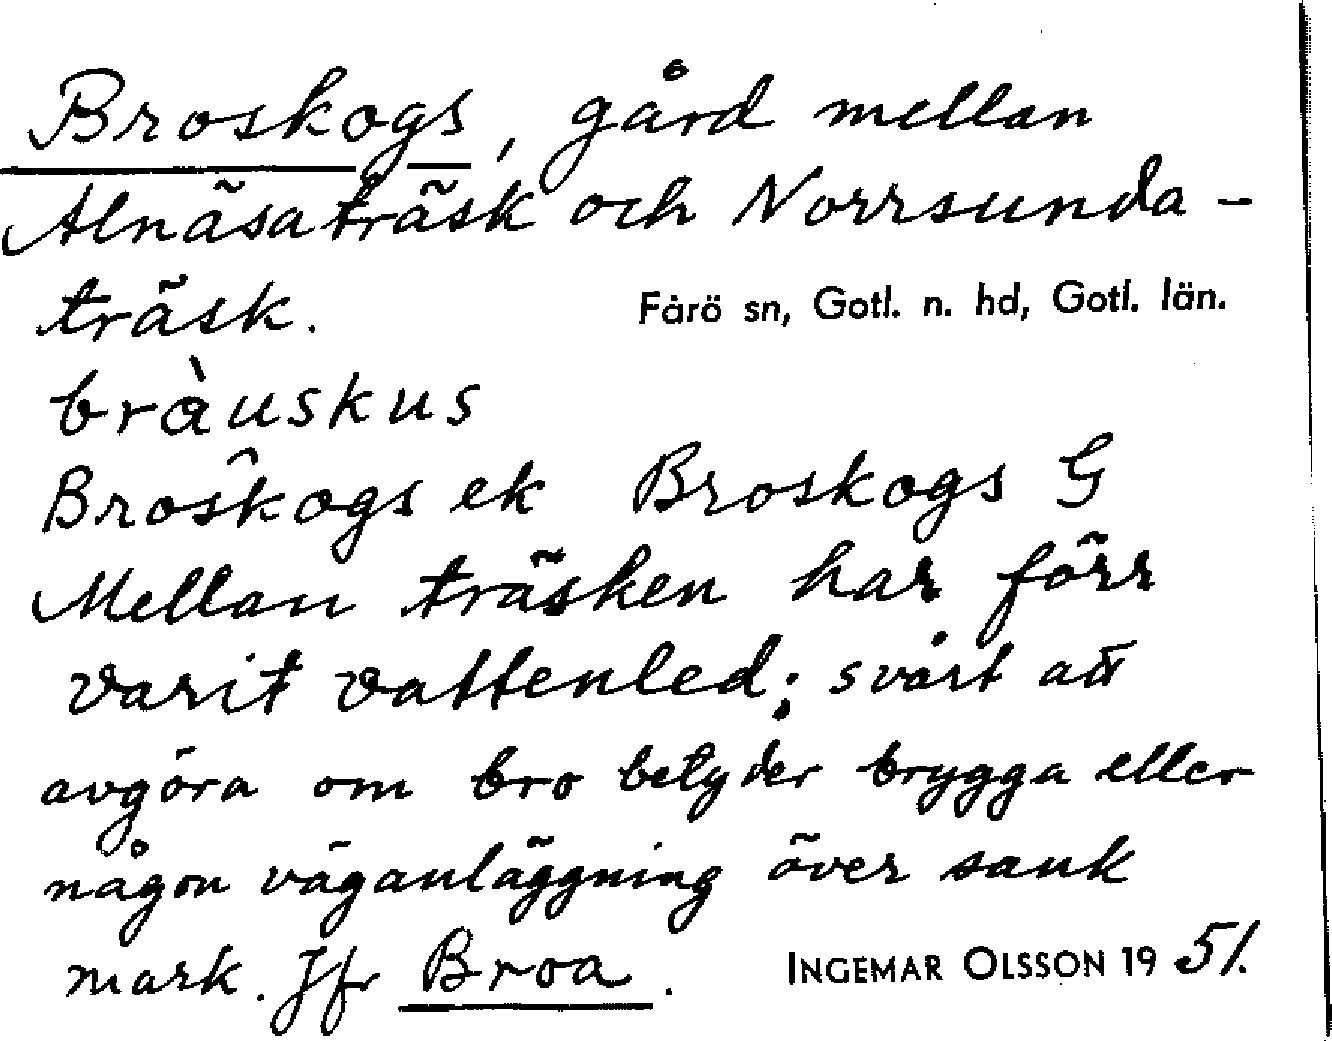 Broskogs, gård mellan
Alnäsaträsk och Norrsunda-
träsk.
Fårö sn, Gotl. n. hd, Gotl. län.
bràuskus
Broskogs ek Broskogs G
Mellan träsken har förr
varit vattenled; svårt att
avgöra om bro betyder brygga eller
någon väganläggning över sank
mark. Jfr Broa.
INGEMAR OLSSON 1951.